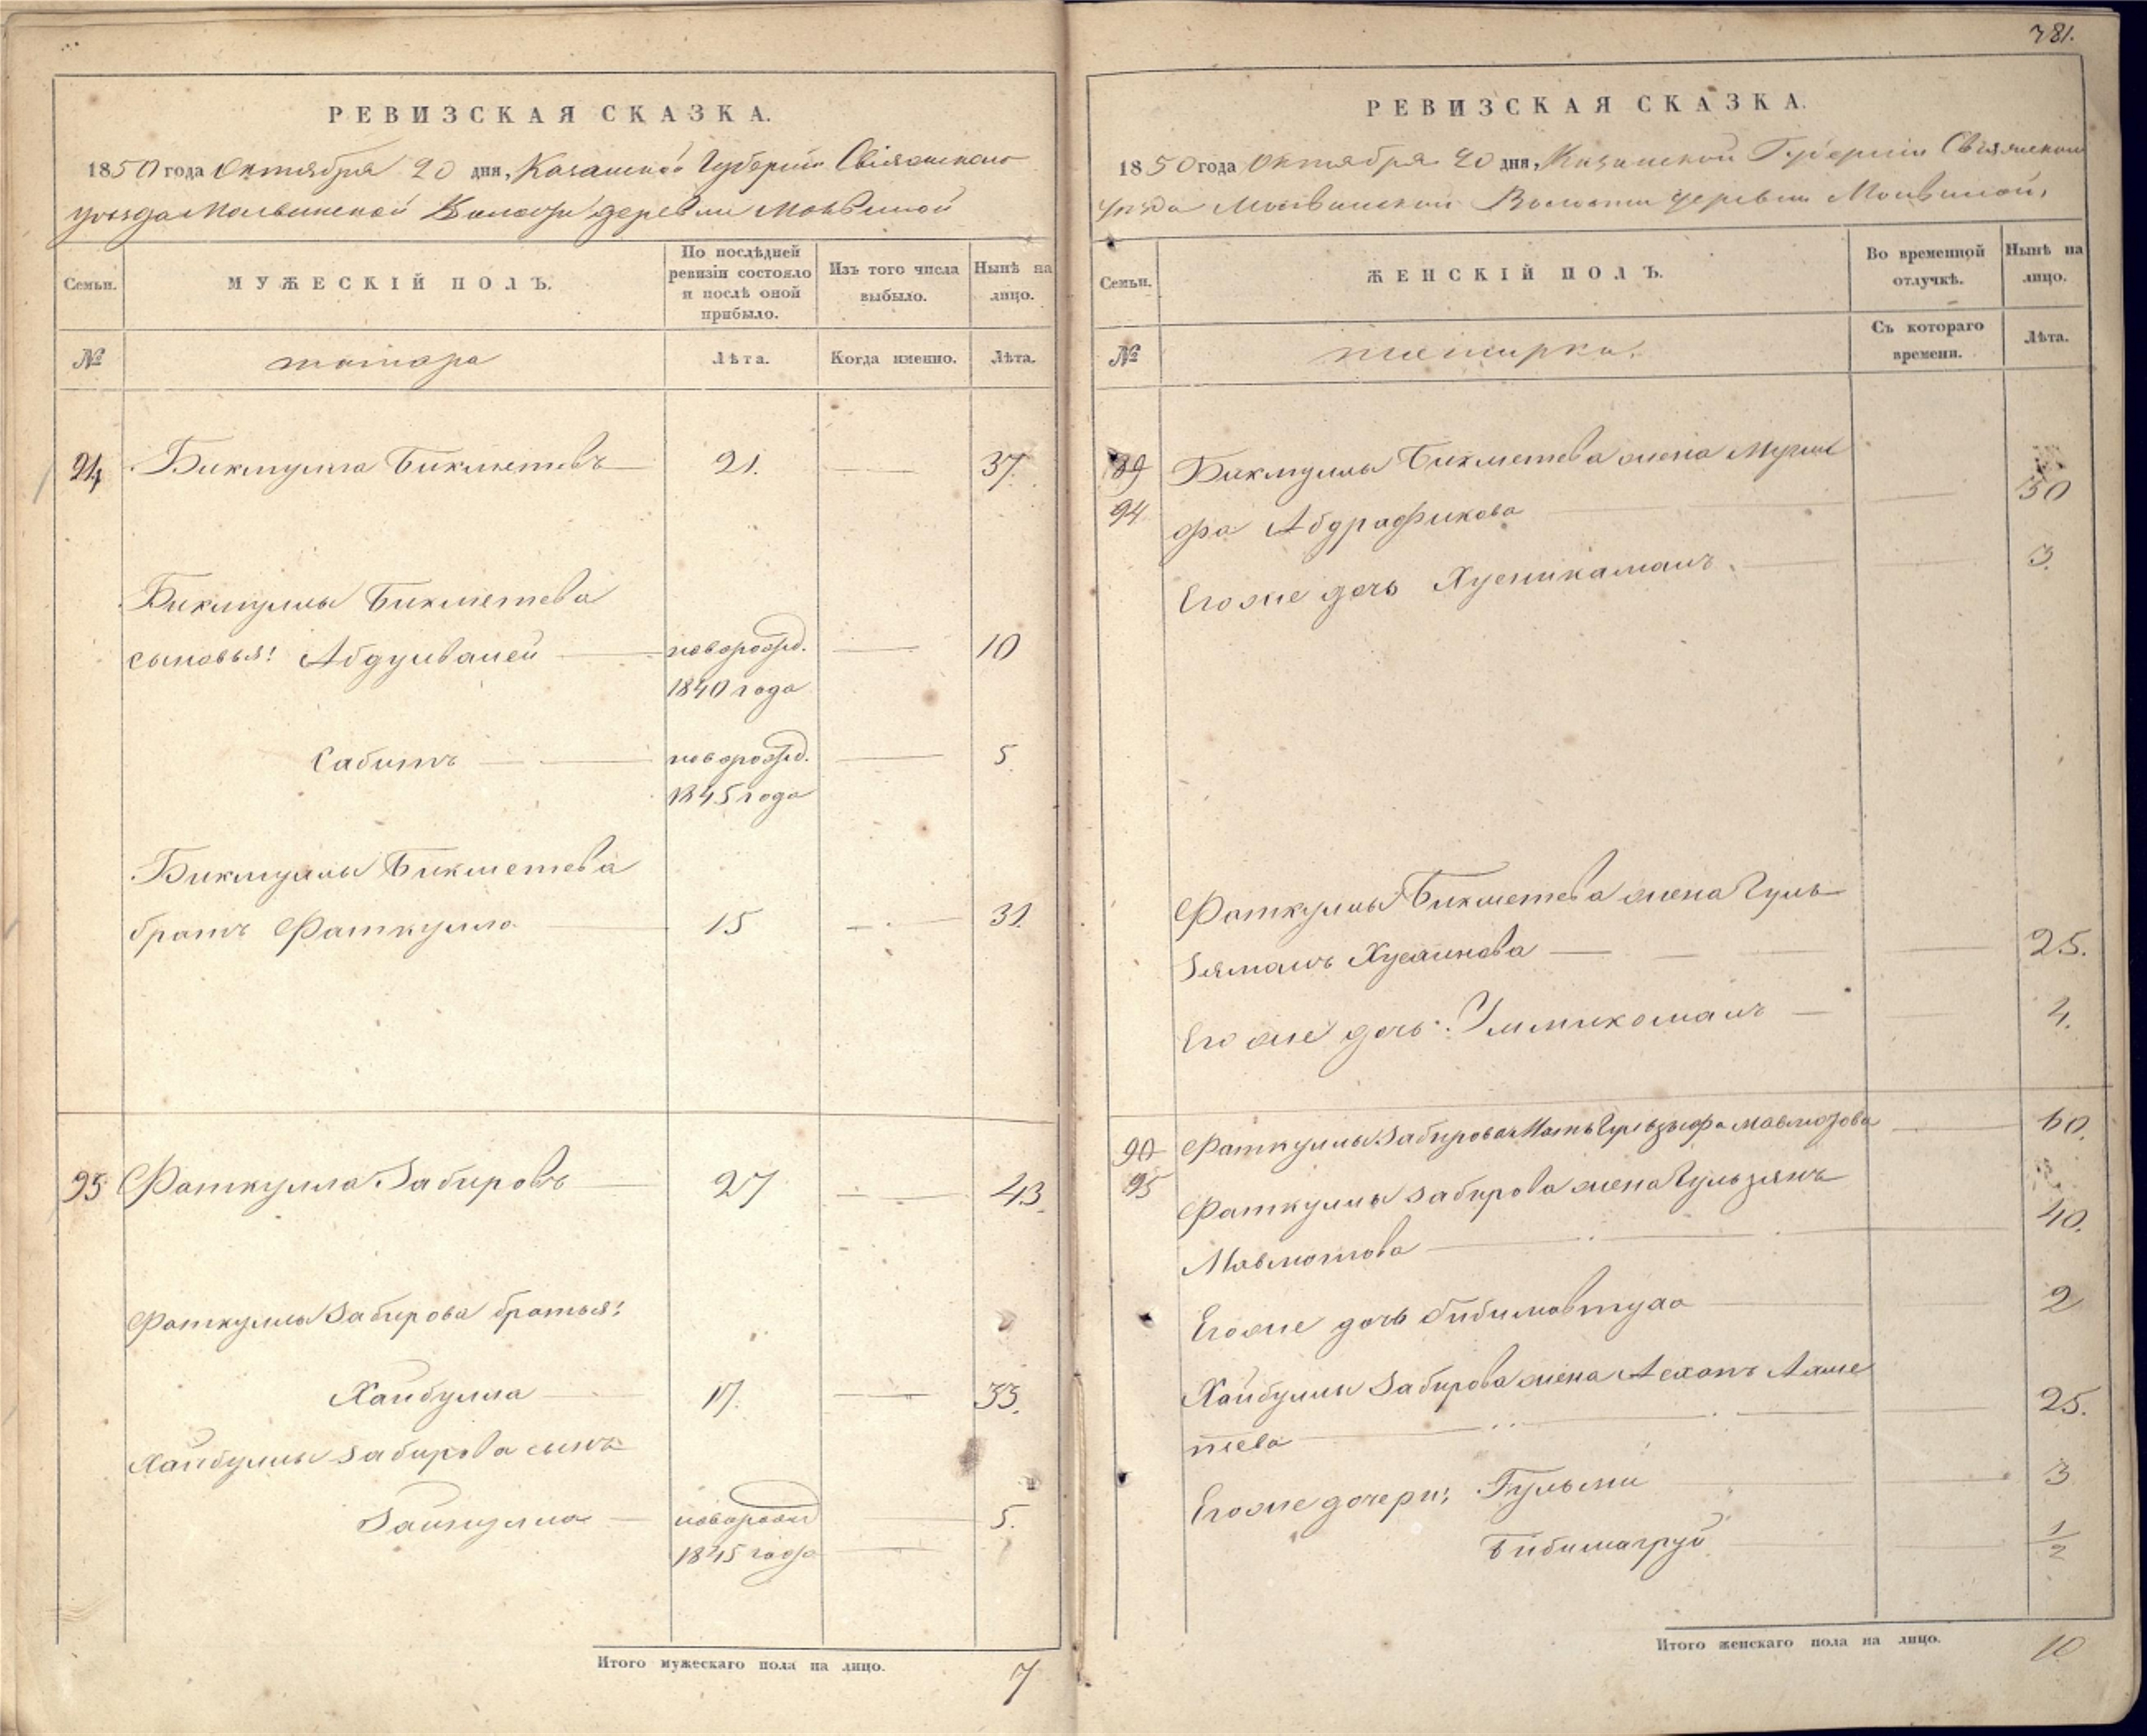 781.
РЕВИЗСКАЯ СКАЗКА.
1850 года Октября 20 дня, Казанской Губернии Свіяжскаго
уѣзда Мольвинской Волости деревни Мольвиной
Семьи.
МУЖЕСКІЙ ПОЛЪ.
По послѣдней ревизіи состояло и послѣ оной прибыло.
Изъ того числа выбыло.
Нынѣ на лицо.
№
татара
Лѣта.
Когда именно.
Лѣта.
94 Бикмулла Бикметевъ 21. 37.
Бикмуллы Бикметева
сыновья: Абдулваней новорожд. 10
1840 года
Сабитъ новорожд. 5
1845 года
Бикмуллы Бикметева
братъ Фаткулла 15 31.
95 Фаткулла Забировъ 27 43.
Фаткуллы Забирова братья:
Хайбулла 17. 33.
Хайбуллы Забирова сынъ
Зайнулла новорожд 5.
1845 года
Итого мужескаго пола на лицо. 7
РЕВИЗСКАЯ СКАЗКА.
1850 года Октября 20 дня, Казанской Губернии Свіяжскаго
уѣзда Мольвинской Волости деревни Мольвиной.
Семьи.
ЖЕНСКІЙ ПОЛЪ.
Во временной отлучкѣ.
Нынѣ на лицо.
№
татарки.
Съ котораго времени.
Лѣта.
89 Бикмуллы Бикметева жена
94 фа Абдрафикова 30
Его же дочь Хусникамалъ 3.
Фаткуллы Бикметева жена Гуль
зямалъ Хусаинова 25.
Его же дочь: Уммикамалъ 4.
90 Фаткуллы Забирова Мать Гульзыфа Мавлютова 60.
95 Фаткуллы Забирова жена Гульзянъ
Мавлютова 40.
Его же дочь Бибимовтуха 2
Хайбуллы Забирова жена Асхапъ Алме
тева 25.
Его же дочери: Гульсти 3
Бибимагруй 1/2
Итого женскаго пола на лицо. 10